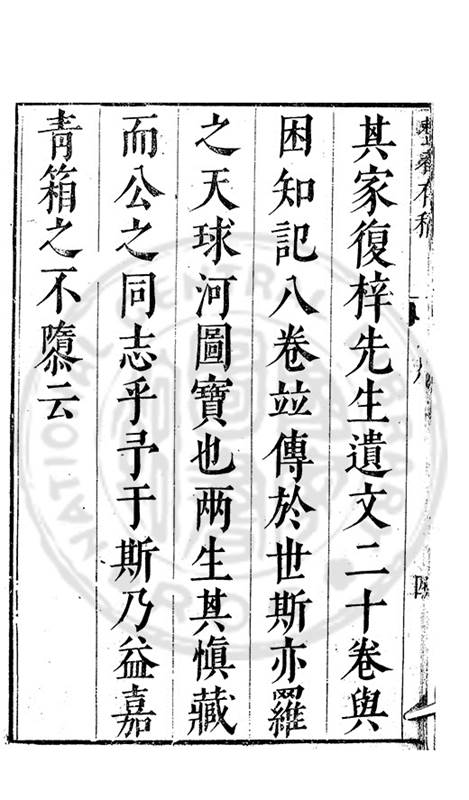 其家復梓先生遺文二十卷與
困知記八卷並傳於世斯亦羅
之天球河圖寶也兩生其慎藏
而公之同志乎予于斯乃益嘉
青箱之不隳云
NATIONAL CENTRAL LIBRARY